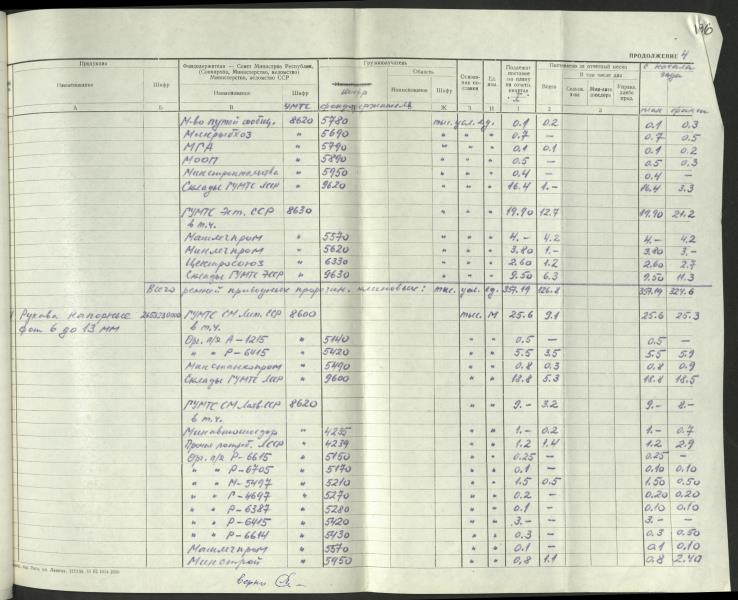 196
ПРОДОЛЖЕНИЕ 4
Продукция
Фондодержатели — Совет Министров Республики, (Совнархоз, Министерство, ведомство) Министерства, ведомства ССР
Грузополучатель
Область
Наименование Шифр Наименование Шифр шифр Наименование Шифр
УМТС фондодержателя
Подлежит поставке по плану на отчетн. квартал I
Поставлено за отчетный месяц
Всего
В том числе для
с начала года
план фактич
А Б В Г Ж З И 1 2 3
М-во путей сообщ. 8620 5780 тыс. усл. ед. 0.1 0.2 0.1 0.3
Минрыбхоз " 5690 " " " 0.7 — 0.7 0.5
МГА " 5790 " " " 0.1 0.1 0.1 0.2
МООП " 5890 " " 0.5 — 0.5 0.3
" 5950 " " 0.4 — 0.4 —
Склады ГУМТС ЛССР " 9620 " " 16.4 1.— 16.4 3.3
ГУМТС Эст. ССР 8630 " " " 19.90 12.7 19.90 21.2
в т.ч.
Машлегпром " 5570 " " " 4.— 4.2 4.— 4.2
Минлегпром " 5620 " " " 3.80 1.— 3.80 3.—
Центросоюз " 6330 " " " 2.60 1.2 2.60 2.7
Склады ГУМТС ЭССР " 9630 " " " 9.50 6.3 9.50 11.3
Всего ремней приводных прорезин. клиновых: тыс. усл. ед. 357.19 126.8 357.19 324.6
Рукава напорные ГУМТС СМ Лит. ССР 8600 тыс. М 25.6 9.1 25.6 25.3
фот 6 до 13 мм в т.ч.
Орг. п/я А-1215 " 5140 " " 0.5 — 0.5 —
" " Р-6415 " 5420 " " 5.5 3.5 5.5 5.9
Минстанкопром " 5490 " " 0.8 0.3 0.8 0.9
Склады ГУМТС ЛССР " 9600 " " 18.8 5.3 18.8 18.5
ГУМТС СМ Латв. ССР 8620 " " 9.— 3.2 9.— 8.—
в т.ч.
Минавтошосдор " 4235 " " 1.— 0.2 1.— 0.7
Прочие потреб. ЛССР " 4239 " " 1.2 1.4 1.2 2.9
Орг. п/я Р-6615 " 5150 " " 0.25 — 0.25 —
" " Р-6705 " 5170 " " 0.1 — 0.10 0.10
" " М-5497 " 5210 " " 1.5 0.5 1.50 0.50
" " Г-4697 " 5270 " " 0.2 — 0.20 0.20
" " Р-6387 " 5280 " " 0.1 — 0.10 0.10
" " Р-6415 " 5420 " " 3.— — 3.— —
" " Р-6614 " 5430 " " 0.3 — 0.3 0.50
Машлегпром " 5570 " " 0.1 — 0.1 0.10
Минстрой " 5950 " " 0.8 1.1 0.8 2.40
верно